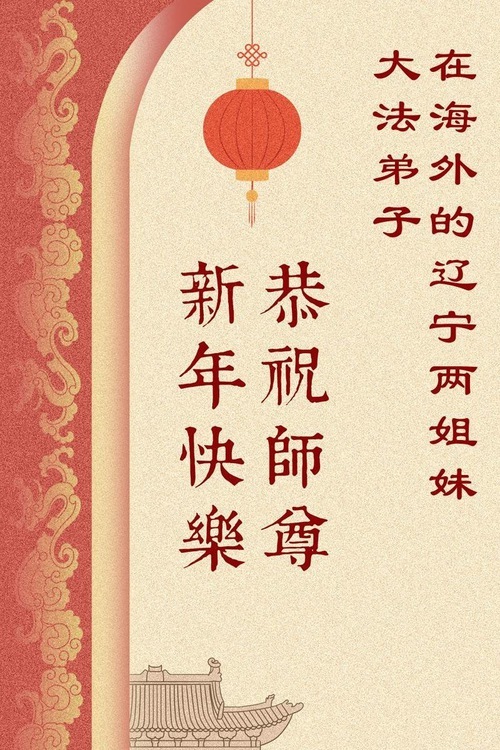 在海外的辽宁两姐妹
大法弟子
恭祝師尊
新年快樂